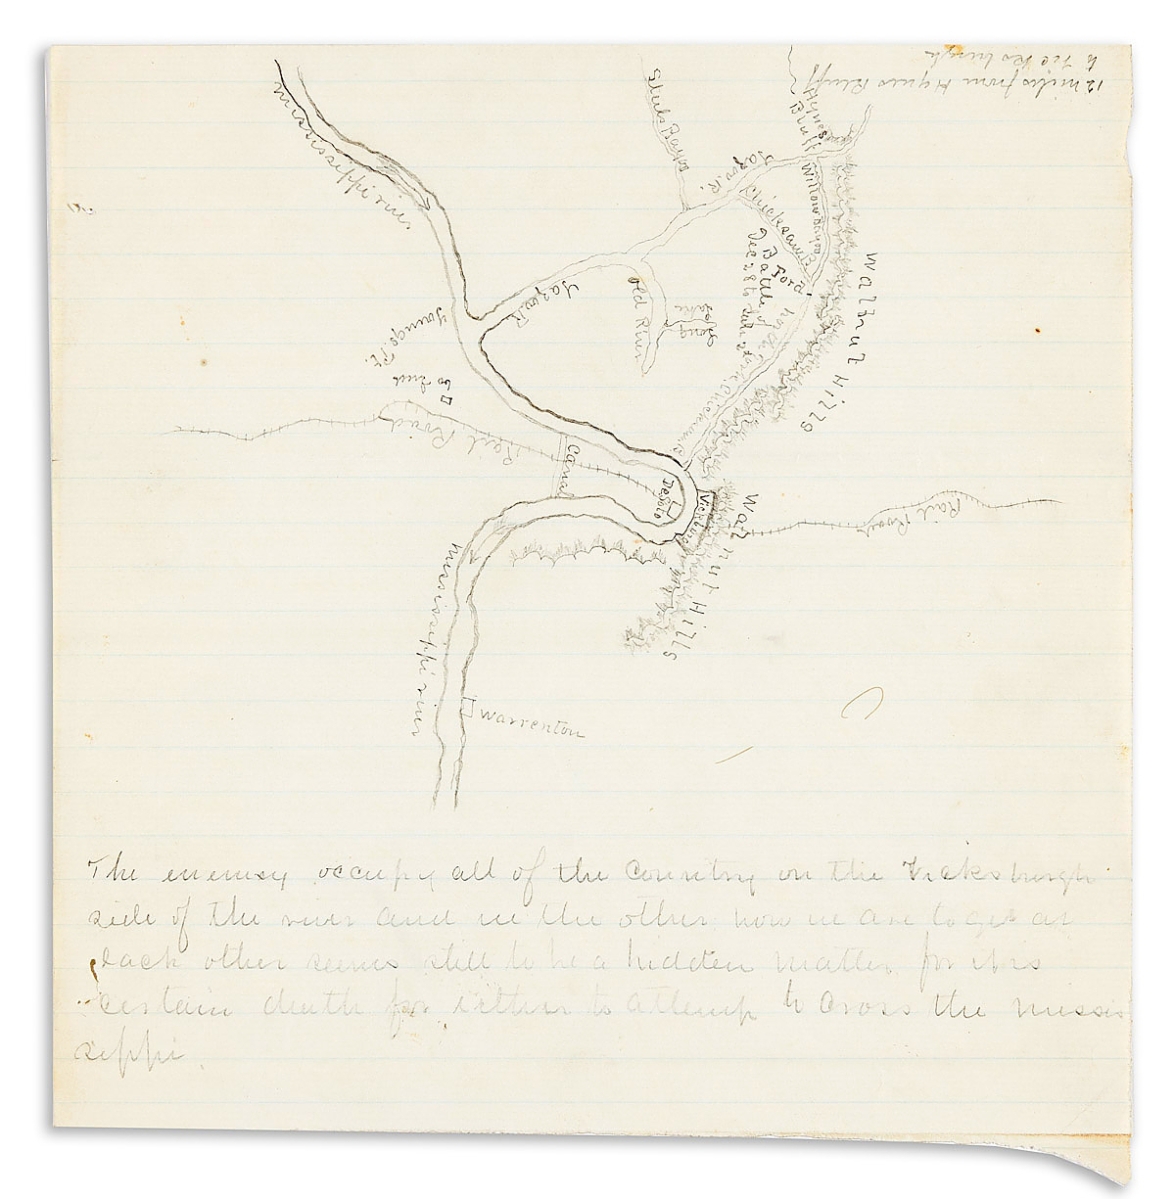 12 miles from Hynes Bluff
to Vicksburgh
Mississippi river
Steels Bayou
Yazoo R.
Hynes
Bluff
Willow Bayou
Chicksaw B.
Ford
Battle of
Dec 28 to
Old River
lake
Yazoo R
Walnut Hills
Youngs Pt.
Rail Road
Canal
DeSoto
Vicksburg
Walnut Hills
Rail Road
Mississippi river
Warrenton
The enemey occupy all of the country on the Vicksburgh
side of the river and we the other how we are to get at
each other seems still to be a hidden matter for it is
certain death for either to attempt to cross the missis
sippi.